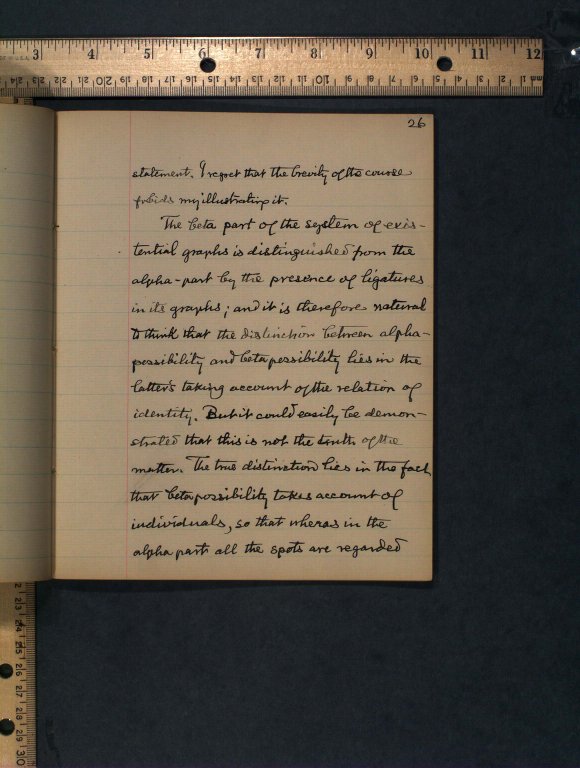 26
statement. I regret that the brevity of the course
forbids my illustrating it.
The beta part of the system of exis-
tential graphs is distinguished from the
alpha-part by the presence of ligatures
in its graphs; and it is therefore natural
to think that the distinction between alpha-
possibility and beta possibility lies in the
latter's taking account of the relation of
identity. But it could easily be demon-
strated that this is not the truth of the
matter. The true distinction lies in the fact
that beta possibility takes account of
individuals, so that wheras in the
alpha part all the spots are regarded